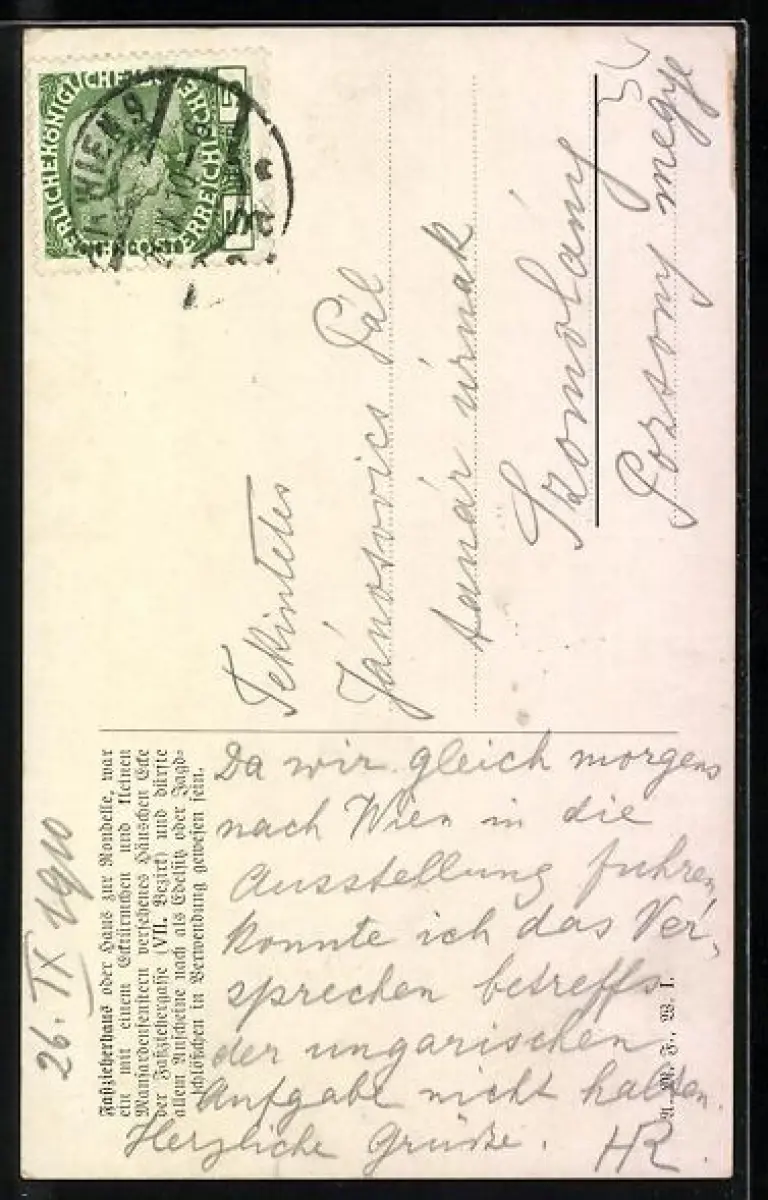 26. IX 1910
Faßzieherhaus oder Haus zur Rondelle, war
ein mit einem Ecktürmchen und kleinen
Mansardenfenstern versehenes Häuschen Ecke
der Faßziehergasse (VII. Bezirk) und dürfte
allem Anscheine nach als Edelsitz oder Jagd-
schlößchen in Verwendung gewesen sein.
Da wir gleich morgens
nach Wien in die
Ausstellung fuhren,
konnte ich das Ver-
sprechen betreffs
der ungarischen
Aufgabe nicht halten.
Herzliche Grüße.
HR.
Tekintetes
Jánosovics Pál
tanár úrnak
Szomolány
Pozsony megye
WIEN 9
KAISERLICHEKÖNIGLICHE
ÖSTERREICHISCHE
5 5